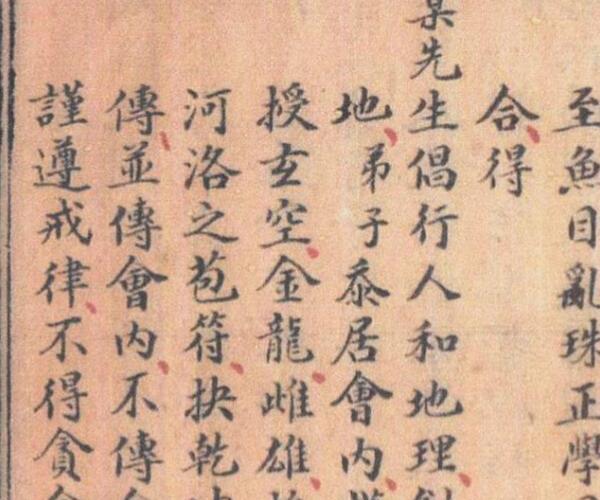 至魚目亂珠正學
合得
某先生倡行人和地理
地弟子忝居會內
授玄空金龍雌雄
河洛之苞符抉乾
傳並傳會內不傳
謹遵戒律不得貪